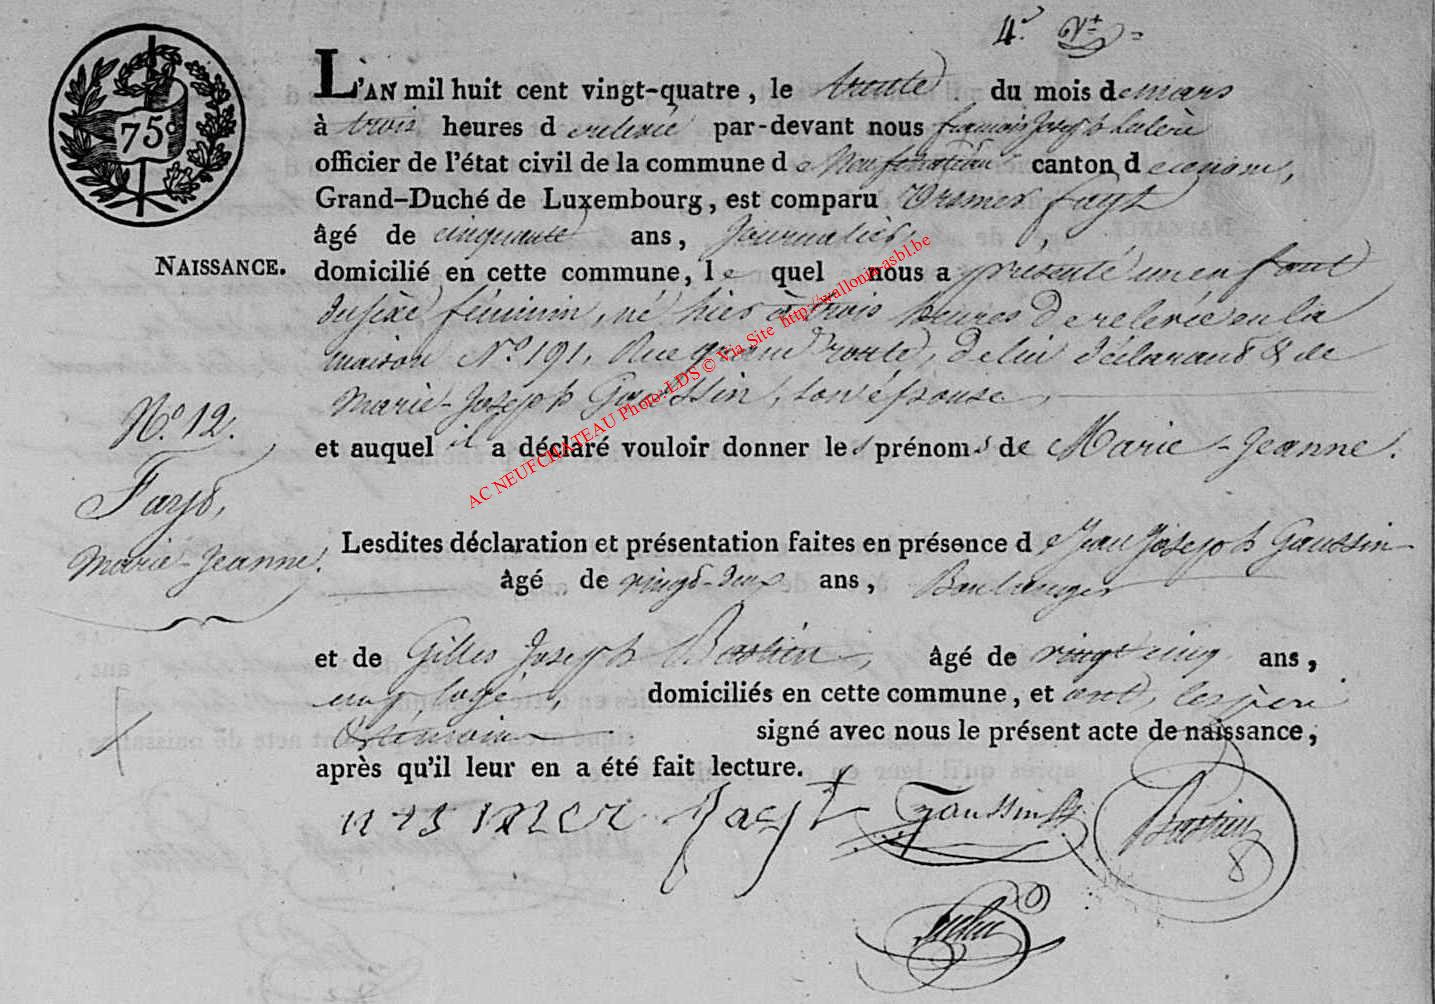 4.e Vt =
75c
L'AN mil huit cent vingt-quatre, le trente du mois de mars
à trois heures de relevée par-devant nous françois Joseph
officier de l'état civil de la commune de Neufchateau canton de idem,
Grand-Duché de Luxembourg, est comparu Ursmer Fayt
âgé de cinquante ans, Journalier,
NAISSANCE.
domicilié en cette commune, le quel nous a présenté un enfant
du sexe féminin, né hier à trois heures de relevée en la
maison N.o 191, Rue grand route, de lui déclarant & de
Marie-Joseph Gaussin, son épouse,
N.o 12.
et auquel il a déclaré vouloir donner les prénoms de Marie-Jeanne.
Fayt,
Marie-Jeanne.
Lesdites déclaration et présentation faites en présence de Jean Joseph Gaussin
âgé de vingt-deux ans, Boulanger
et de Gilles Joseph Bastien, âgé de vingt cinq ans,
employé, domiciliés en cette commune, et ont, les père
& témoins signé avec nous le présent acte de naissance,
après qu'il leur en a été fait lecture.
Fayt Gaussin Bastien
AC NEUFCHATEAU Photo: LDS © Via Site http://wallonia-asbl.be